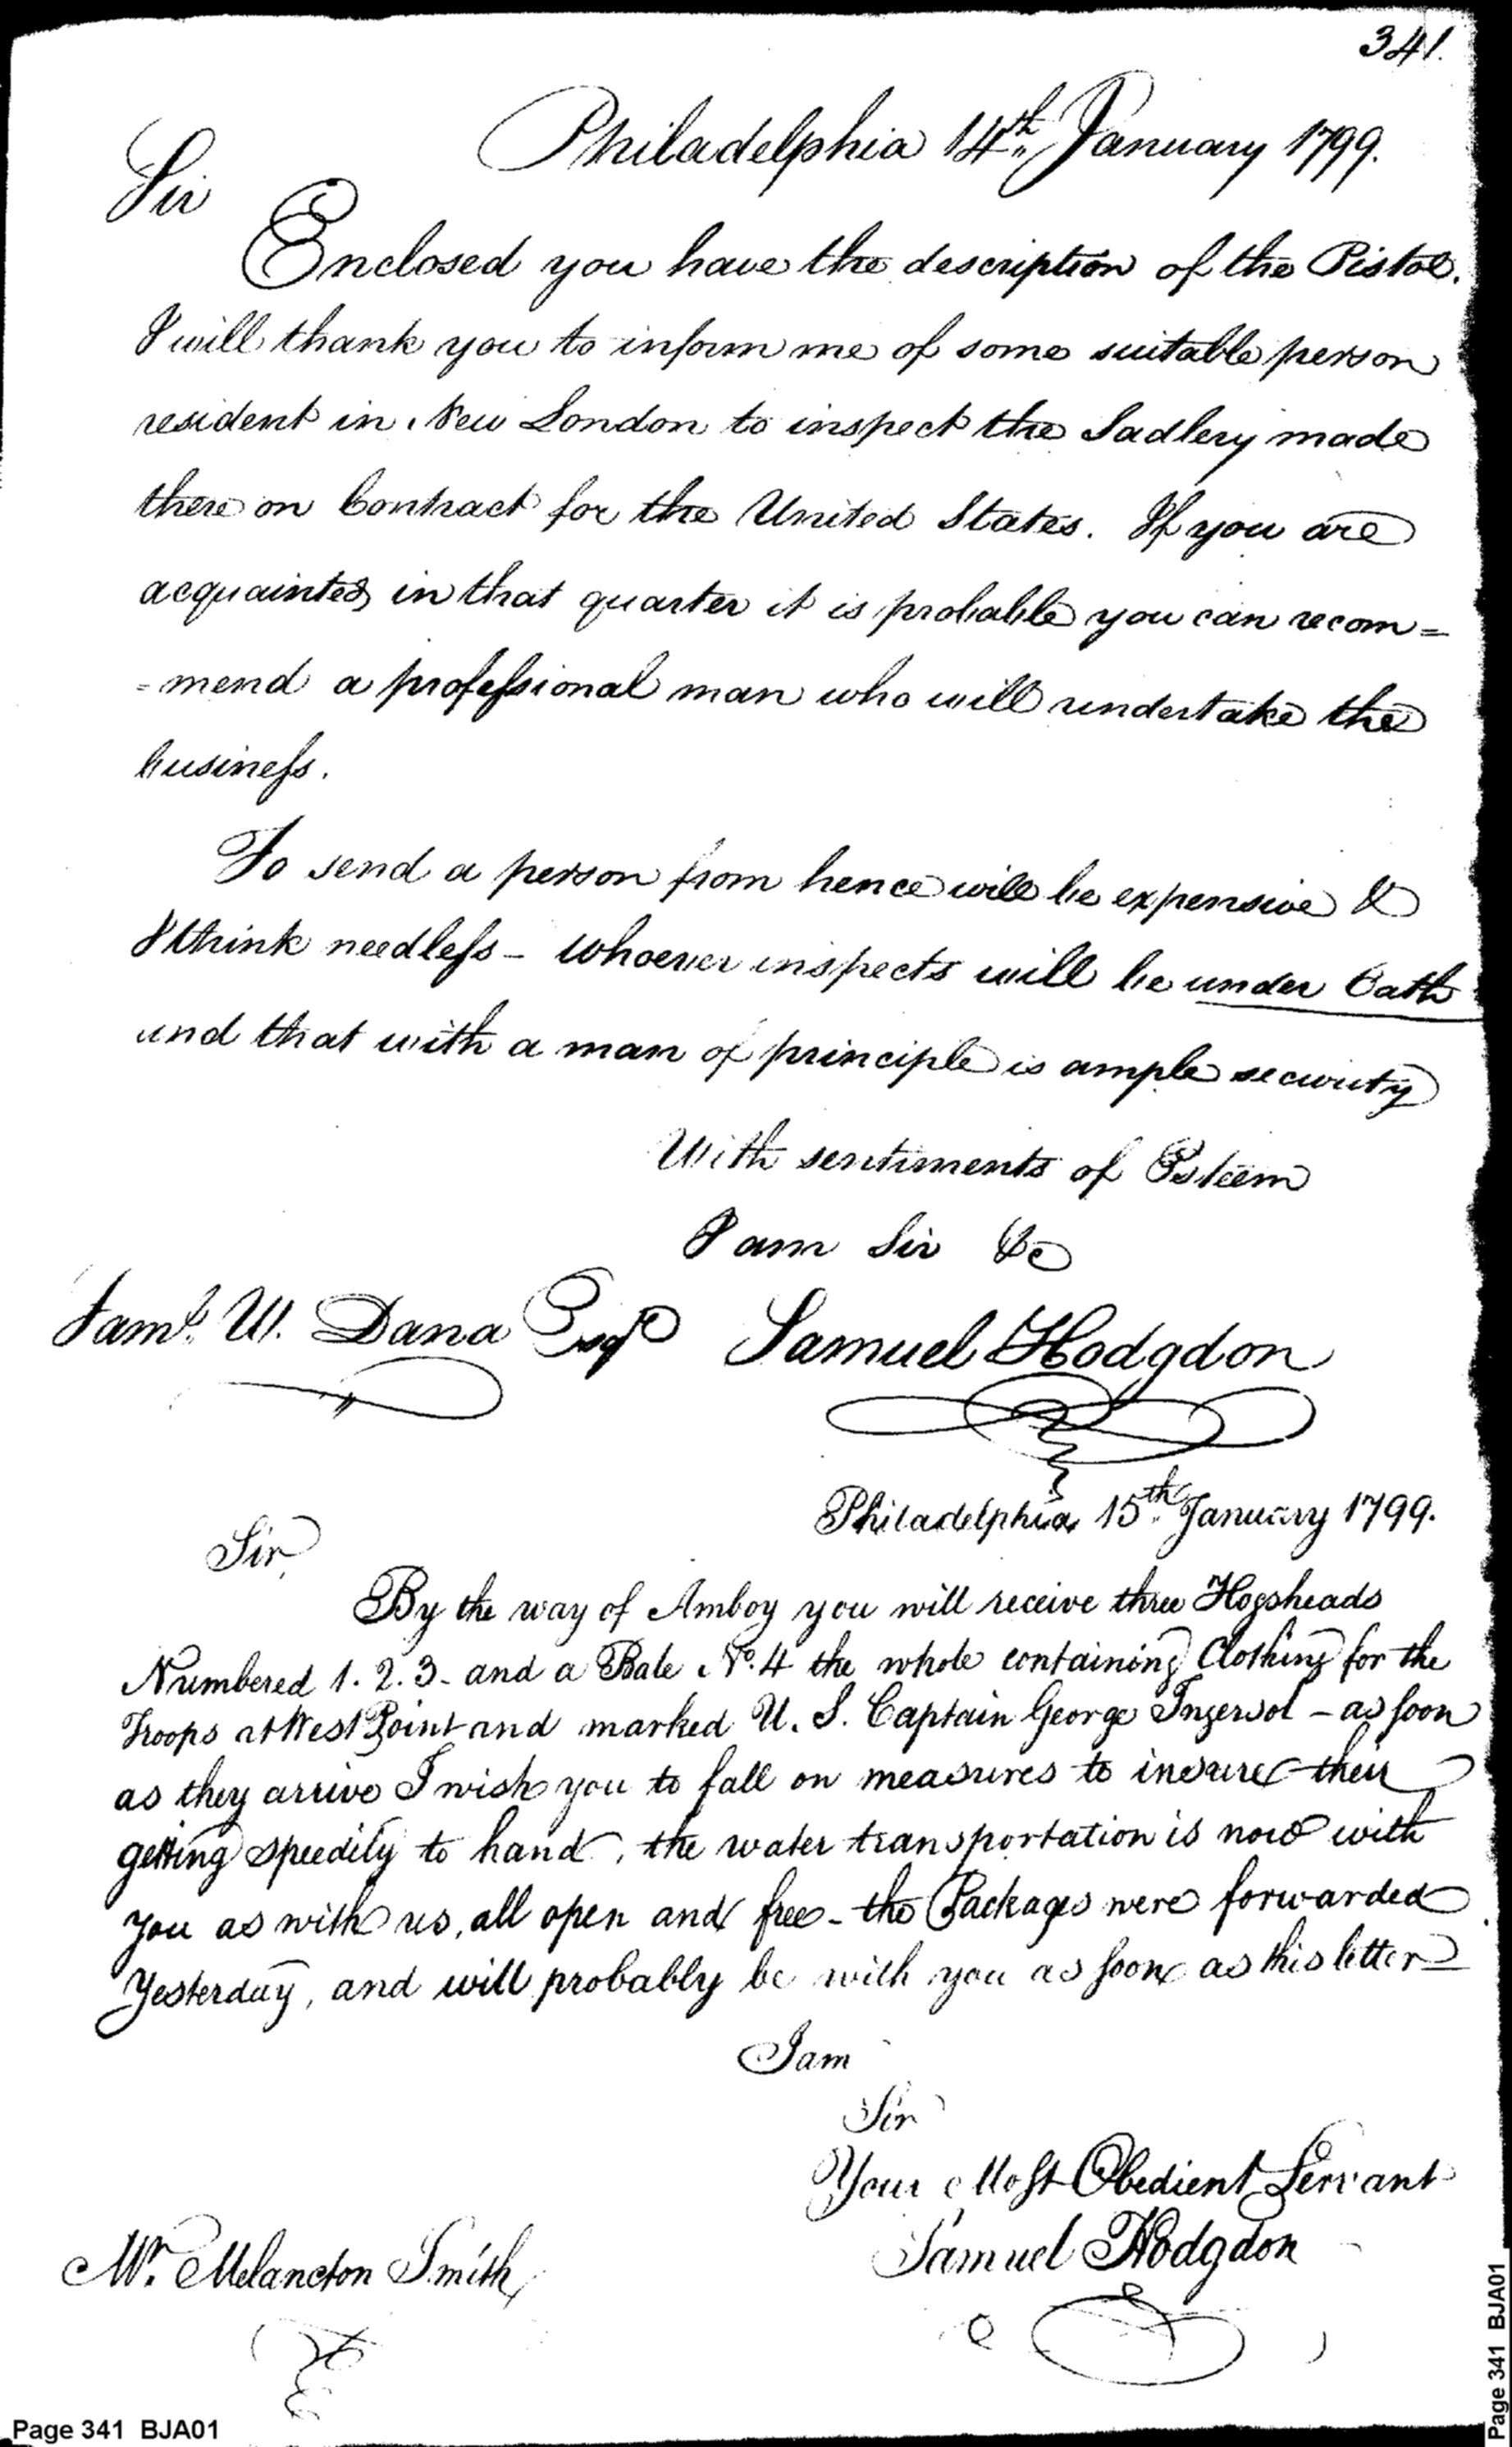 341.
Philadelphia 14th January 1799.
Sir
Enclosed you have the description of the Pistol.
I will thank you to inform me of some suitable person
resident in New London to inspect the Sadlery made
there on Contract for the United States. If you are
acquainted in that quarter it is probable you can recom=
=mend a professional man who will undertake the
business.
To send a person from hence will be expensive &
I think needless - whoever inspects will be under Oath
and that with a man of principle is ample security
With sentiments of Esteem
I am Sir &c
Saml. W. Dana Esqr Samuel Hodgdon
Philadelphia 15th January 1799.
Sir,
By the way of Amboy you will receive three Hogsheads
Numbered 1. 2. 3 - and a Bale No. 4 the whole containing Clothing for the
Troops at West Point and marked U. S. Captain George Ingersol - as soon
as they arrive I wish you to fall on measures to insure their
getting speedily to hand, the water transportation is now with
you as with us, all open and free - the Packages were forwarded
Yesterday, and will probably be with you as soon as this letter
I am
Sir
Your Most Obedient Servant
Samuel Hodgdon
Mr. Melancton Smith
Page 341 BJA01
Page 341 BJA01